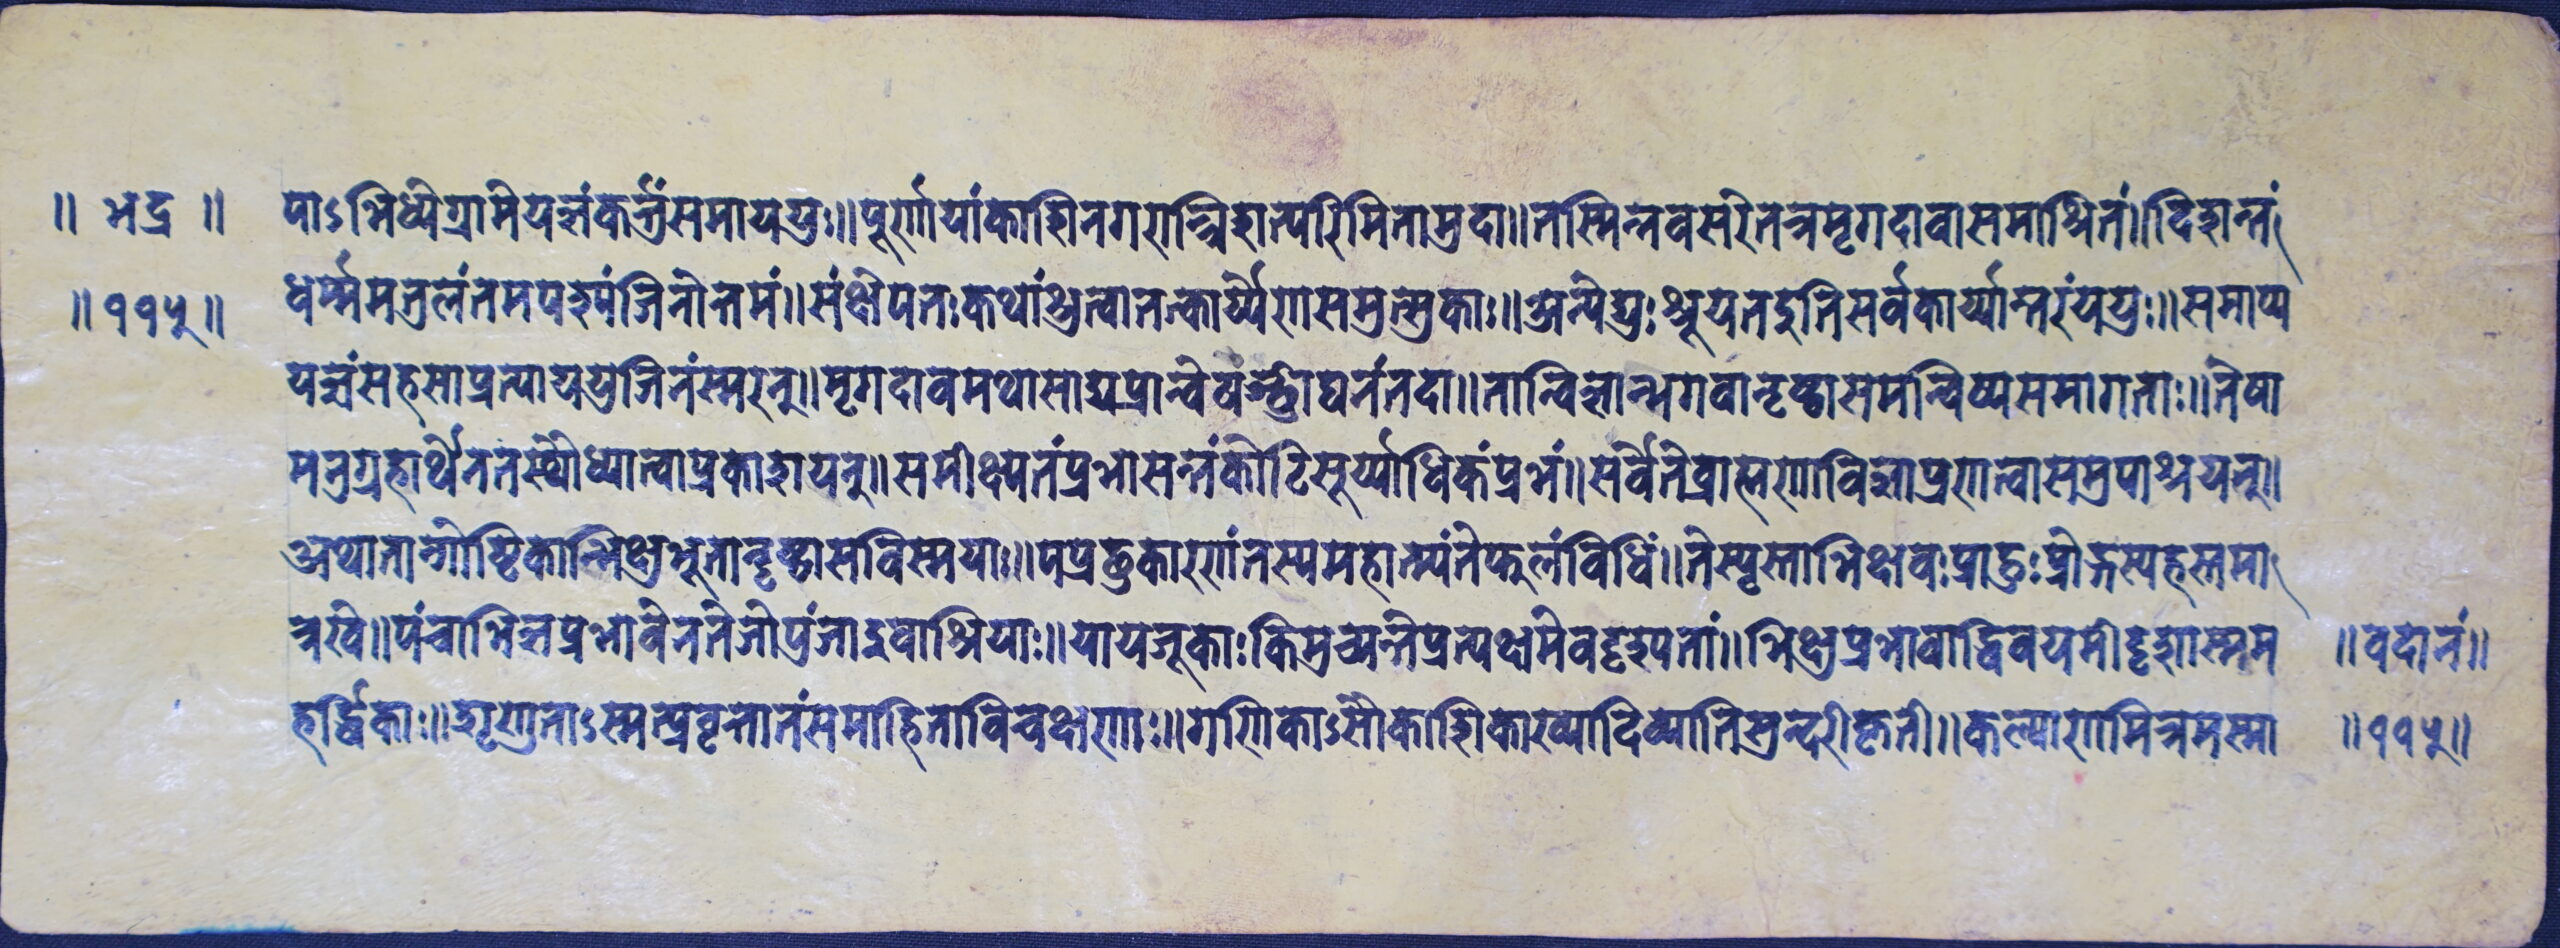 ॥ भद्र ॥ पाऽभिध्येग्रामेयज्ञंकर्त्तुंसमाययुः॥पूर्णायांकाशिनगरान्त्रिंशत्परिमितामुदा॥तस्मिन्नवसरेतत्रमृगदावासमाश्रितं॥दिशन्तं
॥ ११५ ॥ धर्म्ममतुलंतमपश्यंजिनोत्तमं॥संक्षेपतःकथांश्रुत्वातत्कार्य्येणसमुत्सुकाः॥अन्येद्युःश्रूयतइतिसर्वकार्य्यान्तरंययुः॥समाप्य
यज्ञंसहसाप्रत्याययुजिनंस्मरन्॥मृगदावमथासाद्यप्रान्तेवर्ष्तुंघनंतदा॥तान्विज्ञान्भगवान्दृष्ट्वासमन्विष्यसमागताः॥तेषा
मनुग्रहार्थेनतस्थौध्यात्वाप्रकाशयन्॥समीक्ष्यतंप्रभासन्तंकोटिसूर्य्याधिकंप्रभं॥सर्वेतेब्राह्मणाविज्ञाप्रणत्वासमुपाश्रयन्॥
अथातान्गोष्टिकान्भिक्षुभूतान्दृष्ट्वासविस्मयाः॥पप्रछुकारणंतस्यमहात्म्यंतेफलंविधिं॥तेस्पृस्ताभिक्षवःप्राहुःप्रोद्गस्यहस्तमा
त्रखे॥पंचाभिज्ञप्रभावेनतेजोपुंजाइवाश्रियाः॥यायजूकाःकिमुच्यन्तेप्रत्यक्षमेवदृश्यतां॥भिक्षुप्रभावाद्धिवयमीदृशास्मम ॥वदानं॥
हर्द्धिकाः॥शृणुताऽस्मत्प्रवृत्तान्तंसमाहिताविचक्षणाः॥गणिकाऽसौकाशिकाख्यादिव्यातिसुन्दरीकृती॥कल्याणमित्रमस्मा ॥११५॥